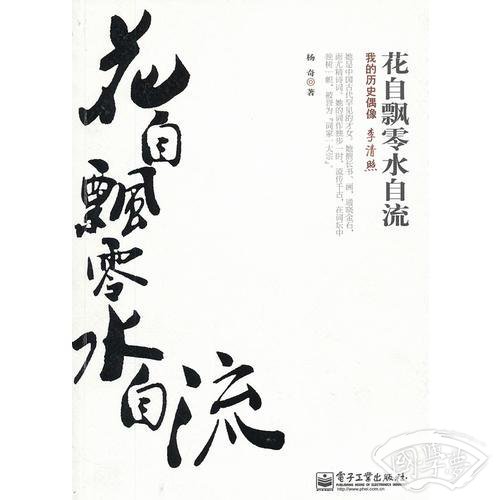 花自飘零水自流
我的历史偶像 李清照
杨奇◎著
她是中国古代罕见的才女。她擅长书、画，通晓金石，
而尤精诗词。她的词作独步一时，流传千古，在词坛中
独树一帜，被誉为“词家一大宗”。
花自飄零水自流
電子工業出版社
PUBLISHING HOUSE OF ELECTRONICS INDUSTRY
http://www.phei.com.cn
國學夢